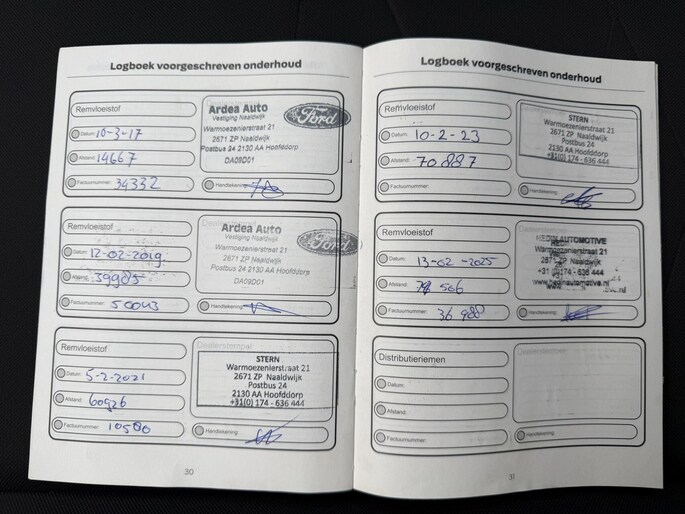 Logboek voorgeschreven onderhoud
Remvloeistof
Datum: 10-3-17
Afstand: 14667
Factuurnummer: 34332
Ardea Auto
Vestiging Naaldwijk
Warmoezenierstraat 21
2671 ZP Naaldwijk
Postbus 24 2130 AA Hoofddorp
DA09D01
Ford
Handtekening:
Remvloeistof
Datum: 12-02-2019
Afstand: 39985
Factuurnummer: 50043
Ardea Auto
Vestiging Naaldwijk
Warmoezenierstraat 21
2671 ZP Naaldwijk
Postbus 24 2130 AA Hoofddorp
DA09D01
Ford
Handtekening:
Remvloeistof
Datum: 5-2-2021
Afstand: 60926
Factuurnummer: 10500
Dealerstempel
STERN
Warmoezenierstraat 21
2671 ZP Naaldwijk
Postbus 24
2130 AA Hoofddorp
+31(0) 174 - 636 444
Handtekening:
30
Logboek voorgeschreven onderhoud
Remvloeistof
Datum: 10-2-23
Afstand: 70887
Factuurnummer:
STERN
Warmoezenierstraat 21
2671 ZP Naaldwijk
Postbus 24
2130 AA Hoofddorp
+31(0) 174 - 636 444
Handtekening:
Remvloeistof
Datum: 13-02-2025
Afstand: 506
Factuurnummer: 36980
HEDIN AUTOMOTIVE
Warmoezenierstraat 21
2671 ZP Naaldwijk
+31 (0)174 - 636 444
www.hedinautomotive.nl
Handtekening:
Distributieriemen
Datum:
Afstand:
Factuurnummer:
Dealerstempel
Handtekening:
31